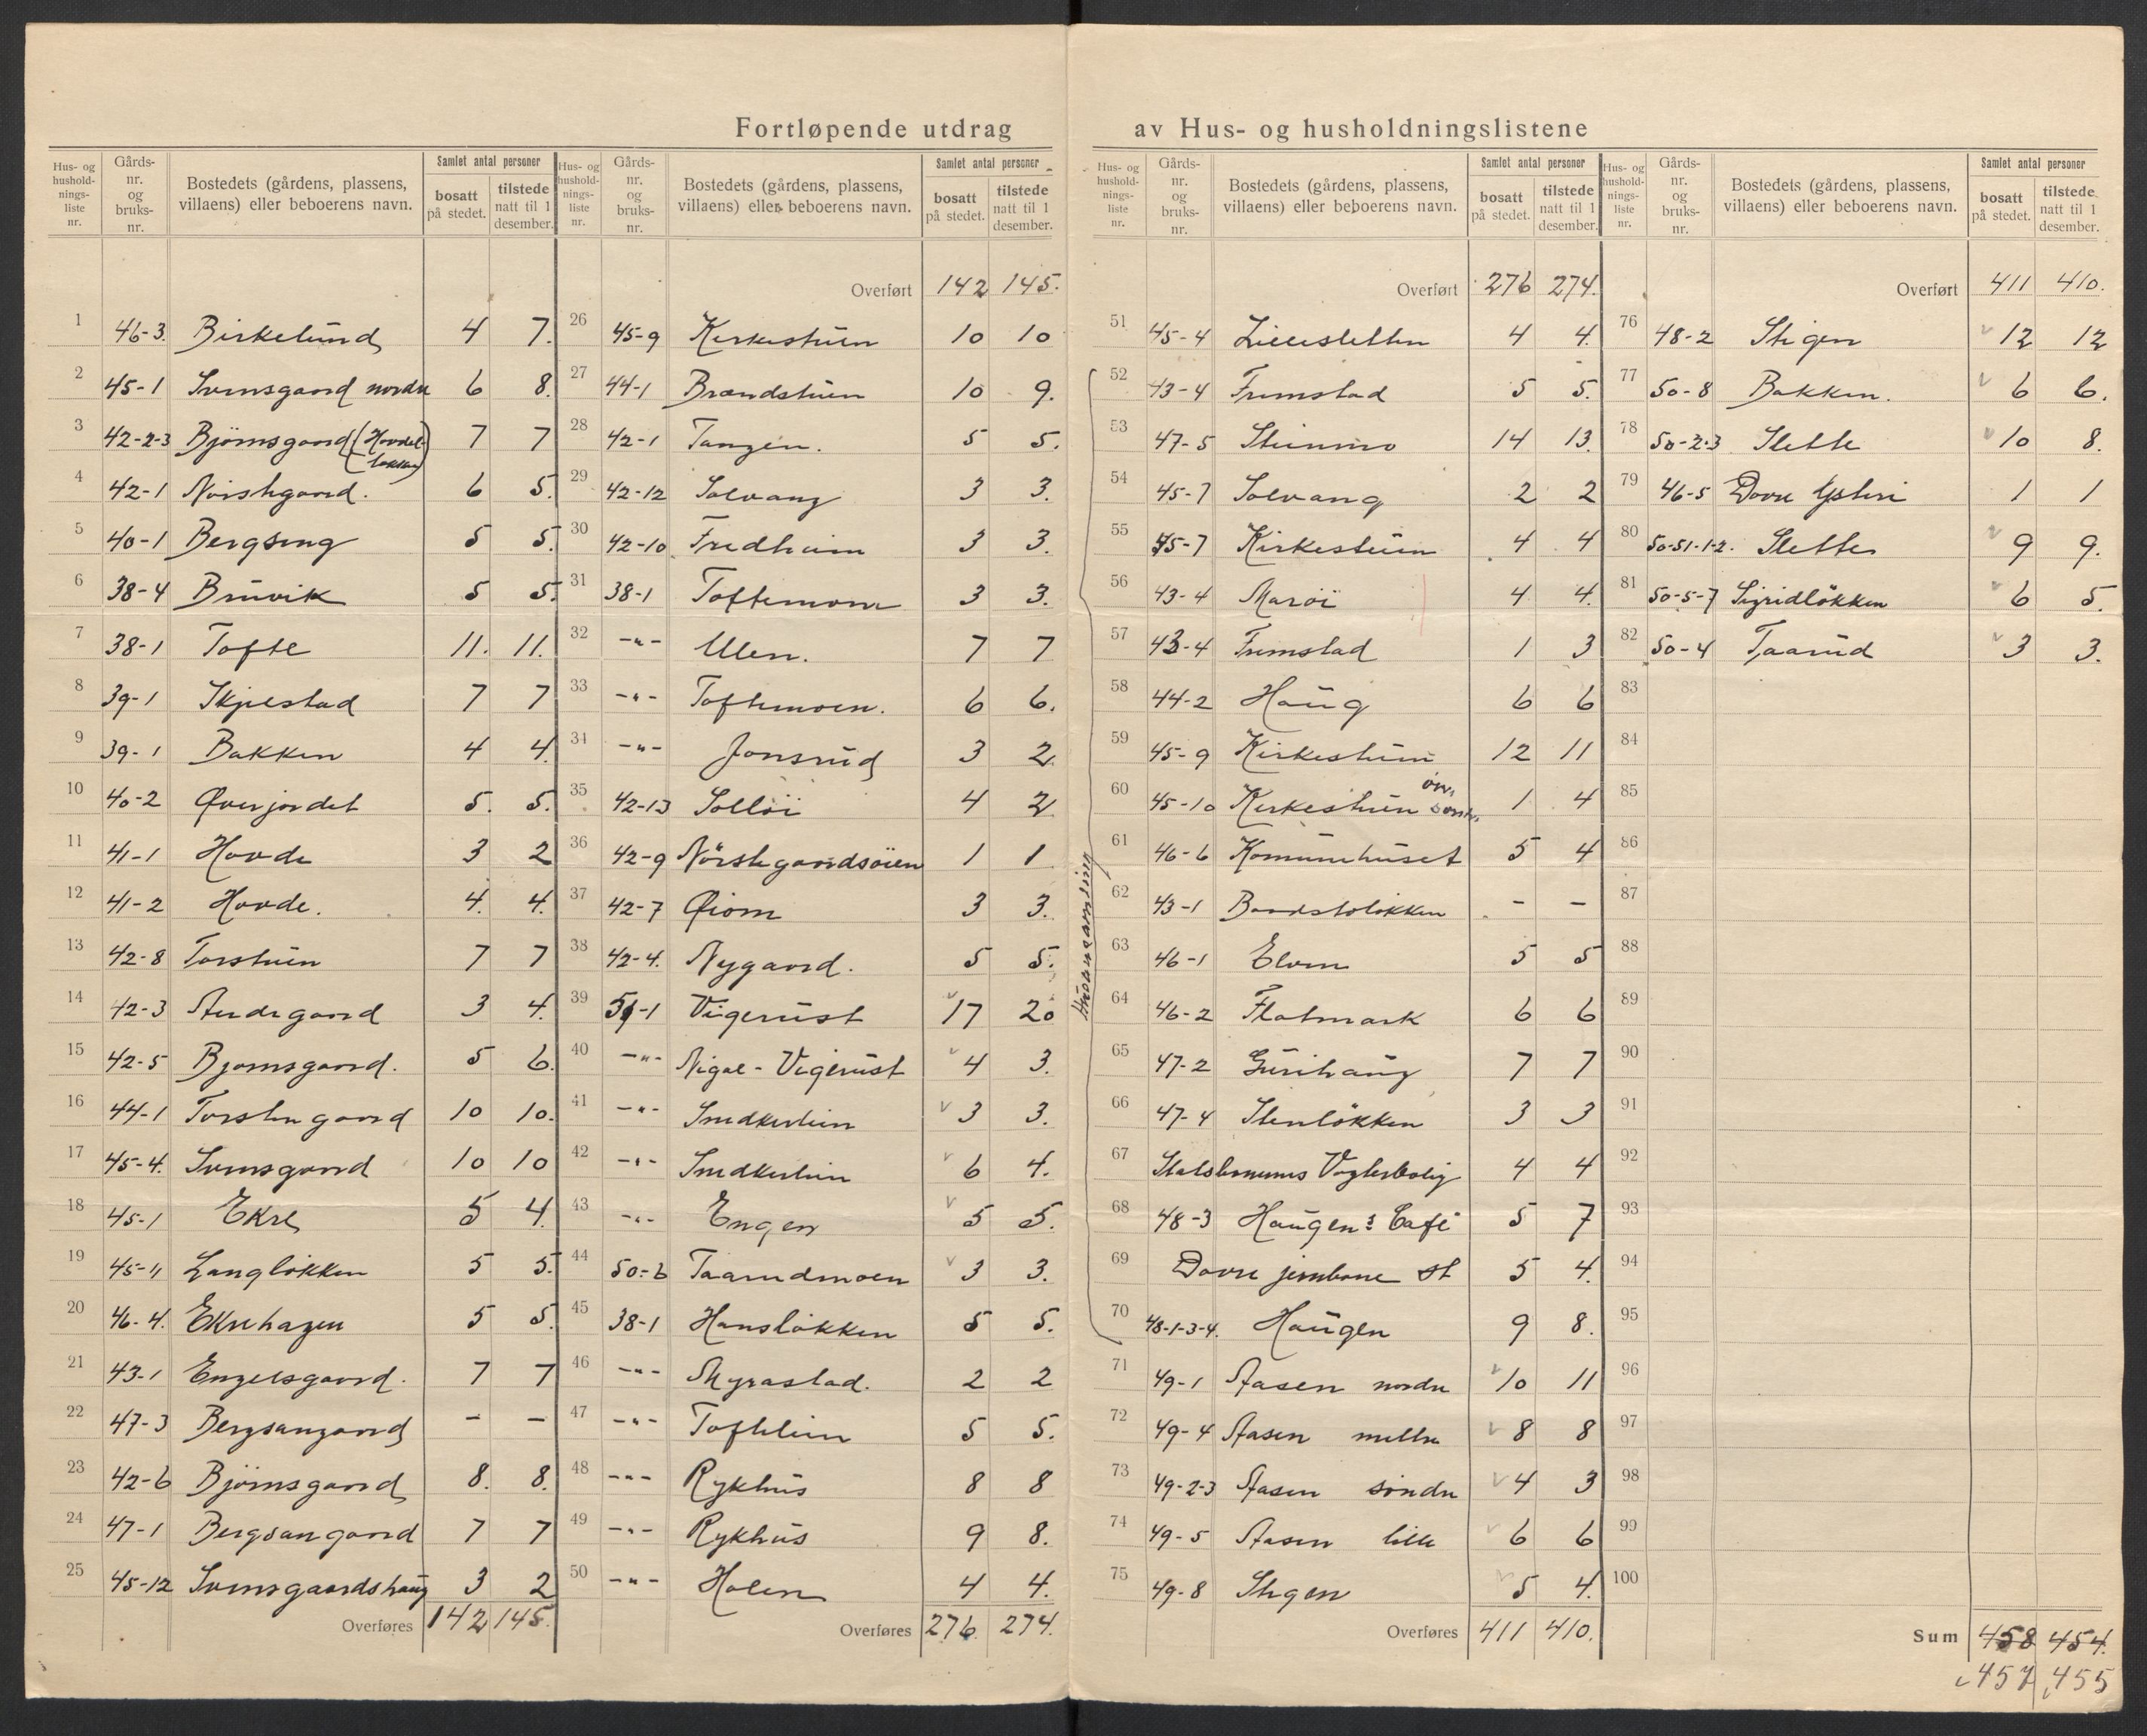 Fortløpende utdrag av Hus- og husholdningslistene
Hus- og husholdnings-liste nr. Gårds-nr. og bruks-nr. Bostedets (gårdens, plassens, villaens) eller beboerens navn. Samlet antal personer bosatt på stedet. tilstede natt til 1 desember.
1 46-3. Birkelund 4 7.
2 45-1 Svensgaard nordre 6 8.
3 42-2-3 Björnsgaard (Hovdeløkken) 7 7
4 42-1 Nörstegaard. 6 5.
5 40-1 Bergseng 5 5.
6 38-4 Brüvik 5 5.
7 38-1 Tofte 11. 11.
8 39-1 Skjelstad 7 7
9 39-1 Bakken 4 4.
10 40-2 Øverjordet 5. 5.
11 41-1 Hovde 3 2
12 41-2 Hovde. 4. 4.
13 42-8 Torstuen 7 7
14 42-3 Sudegaard 3 4.
15 42-5 Bjornsgaard. 5 6.
16 44-1 Torstengaard 10 10.
17 45-4. Svensgaard 10 10
18 45-1 Ekre 5 4.
19 45-11 Langløkken 5 5.
20 46-4. Ekrehagen 5 5.
21 43-1 Engelsgaard. 7 7
22 47-3 Bergsangaard - -
23 42-6 Björnsgaard 8. 8.
24 47-1 Bergsangaard 7 7
25 45-12 Svensgaardshaug 3 2
Overføres 142 145.
Hus- og husholdnings-liste nr. Gårds-nr. og bruks-nr. Bostedets (gårdens, plassens, villaens) eller beboerens navn. Samlet antal personer bosatt på stedet. tilstede natt til 1 desember.
Overført 142 145.
26 45-9 Kirkestuen 10 10
27 44-1 Brændstuen 10 9.
28 42-1 Tangen. 5 5.
29 42-12 Solvang 3 3.
30 42-10 Fredheim 3 3.
31 38-1 Toftemoen 3 3.
32 -"- Ulen. 7 7
33 -"- Toftemoen. 6 6.
34 -"- Jonsrud 3 2
35 42-13 Solløi 4 2
36 42-9 Nörstegaardsöien 1 1
37 42-7 Øiom 3 3.
38 42-4. Nygaard. 5 5.
39 51-1 Vigerust 17 20
40 -"- Nigal-Vigerust 4 3.
41 -"- Smedkerleien 3 3.
42 -"- Smedkerleien 6 4.
43 -"- Engen 5 5.
44 50-6 Taarudmoen 3 3.
45 38-1 Hansløkken 5 5.
46 -"- Myrastad. 2 2
47 -"- Toftelien 5 5.
48 -"- Rykhus 8 8
49 -"- Rykhus 9 8.
50 -"- Holen 4 4.
Overføres 276 274.
Hus- og husholdnings-liste nr. Gårds-nr. og bruks-nr. Bostedets (gårdens, plassens, villaens) eller beboerens navn. Samlet antal personer bosatt på stedet. tilstede natt til 1 desember.
Overført 276 274.
51 45-4 Lillesletten 4 4.
52 43-4 Fremstad 5 5.
53 47-5 Steinmo 14 13.
54 45-7 Solvang 2 2
55 45-7 Kirkestuen 4 4
56 43-4 Maröi 4 4.
57 43-4 Fremstad 1 3
58 44-2 Haug 6 6
59 45-9 Kirkestuen 12 11
60 45-10 Kirkestuen 1 4
61 46-6 Komunehuset 5 4
62 43-1 Baardstoløkken - -
63 46-1 Elven 5 5
64 46-2 Flatmark 6 6
65 47-2 Gürihaug 7 7
66 47-4 Stenløkken 3 3
67 Statsbanenes Vogterbolig 4 4
68 48-3 Haugens Café 5 7
69 Dovre jernbane st 5 4.
70 48-1-3-4. Haugen 9 8.
71 49-1 Aasen nordre 10 11
72 49-4 Aasen mellre 8 8
73 49-2-3 Aasen søndre 4 3
74 49-5 Aasen lille 6 6
75 49-8 Stigen 5 4.
Overføres 411 410.
Hus- og husholdnings-liste nr. Gårds-nr. og bruks-nr. Bostedets (gårdens, plassens, villaens) eller beboerens navn. Samlet antal personer bosatt på stedet. tilstede natt til 1 desember.
Overført 411 410.
76 48-2 Stigen 12 12
77 50-8 Bakken. 6 6.
78 50-2-3 Slette 10 8.
79 46-5 Dovre Ysteri 1 1
80 50-51-1-2. Slette 9 9.
81 50-5-7 Sigridløkken 6 5.
82 50-4 Taarud 3 3.
83
84
85
86
87
88
89
90
91
92
93
94
95
96
97
98
99
100
Sum 458 454.
457 455